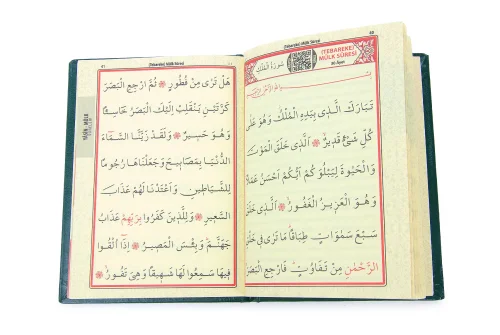 40
(TEBAREKE)
MÜLK SÛRESİ
30 Âyet
سُورَةُ الْمُلْكِ
بِسْمِ اللّٰهِ الرَّحْمٰنِ الرَّحِيمِ
تَبَارَكَ الَّذِى بِيَدِهِ الْمُلْكُ وَهُوَ عَلٰى
كُلِّ شَىْءٍ قَدِيرٌ ❋ اَلَّذِى خَلَقَ الْمَوْتَ
وَالْحَيٰوةَ لِيَبْلُوَكُمْ اَيُّكُمْ اَحْسَنُ عَمَلًا
وَهُوَ الْعَزِيزُ الْغَفُورُ ❋ اَلَّذِى خَلَقَ
سَبْعَ سَمٰوَاتٍ طِبَاقًا مَا تَرٰى فِى خَلْقِ
الرَّحْمٰنِ مِنْ تَفَاوُتٍ فَارْجِعِ الْبَصَرَ
41
(Tebareke) Mülk Sûresi
هَلْ تَرٰى مِنْ فُطُورٍ ❋ ثُمَّ ارْجِعِ الْبَصَرَ
كَرَّتَيْنِ يَنْقَلِبْ اِلَيْكَ الْبَصَرُ خَاسِئًا
وَهُوَ حَسِيرٌ ❋ وَلَقَدْ زَيَّنَّا السَّمَاءَ
الدُّنْيَا بِمَصَابِيحَ وَجَعَلْنَاهَا رُجُومًا
لِلشَّيَاطِينِ وَاَعْتَدْنَا لَهُمْ عَذَابَ
السَّعِيرِ ❋ وَلِلَّذِينَ كَفَرُوا بِرَبِّهِمْ عَذَابُ
جَهَنَّمَ وَبِئْسَ الْمَصِيرُ ❋ اِذَا اُلْقُوا
فِيهَا سَمِعُوا لَهَا شَهِيقًا وَهِىَ تَفُورُ ❋